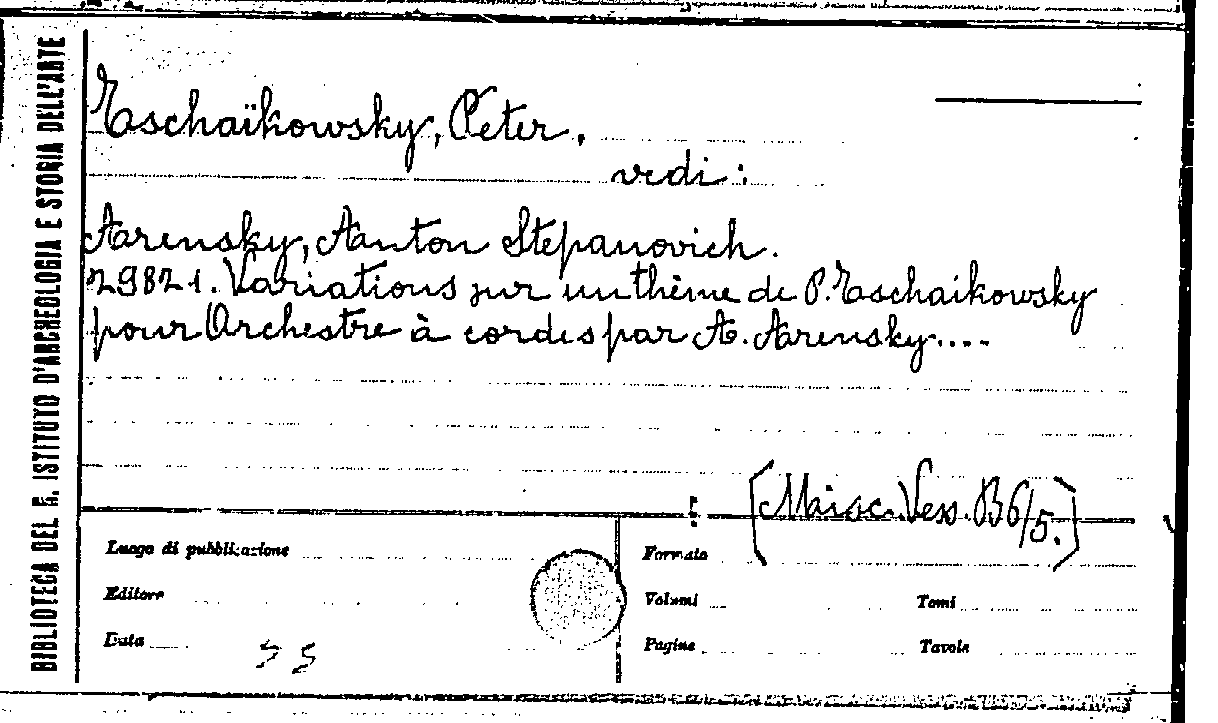 BIBLIOTECA DEL R. ISTITUTO D'ARCHEOLOGIA E STORIA DELL'ARTE
Tschaïkowsky, Peter.
vedi:
Arensky, Anton Stepanovich.
29821. Variations sur un thème de P. Tschaikowsky
pour Orchestre à cordes par A. Arensky....
[Misc. Vess. B6/5.]
Luogo di pubblicazione
Formato
Editore
Volumi
Tomi
Data
Pagine
Tavole